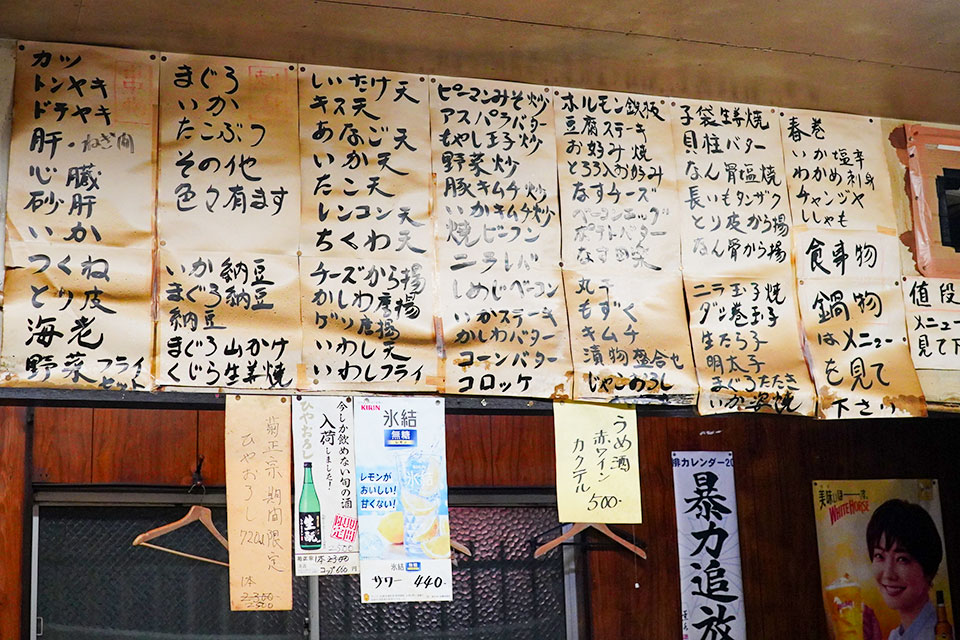 カツ
トンヤキ
ドテヤキ
肝・ねぎ間
心臓
砂肝
いか
つくね
とり皮
海老
野菜フライ
セット
まぐろ
いか
たこぶつ
その他
色々有ます
いか納豆
まぐろ納豆
納豆
まぐろ山かけ
くじら生姜焼
しいたけ天
キス天
あなご天
いか天
たこ天
レンコン天
ちくわ天
チーズから揚
かしわ唐揚
ゲソ唐揚
いわし天
いわしフライ
ピーマンみそ炒
アスパラバター
もやし玉子炒
野菜炒
豚キムチ炒
いかキムチ炒
焼ビーフン
ニラレバ
しめじベーコン
いかステーキ
かしわバター
コーンバター
コロッケ
ホルモン鉄板
豆腐ステーキ
お好み焼
とろろ入お好み
なすチーズ
ベーコンエッグ
ポテトバター
丸干
もずく
キムチ
漬物盛合せ
じゃこおろし
子袋生姜焼
貝柱バター
なん骨塩焼
長いもタンザク
とり皮から揚
なん骨から揚
ニラ玉子焼
ダシ巻玉子
生たら子
明太子
まぐろたたき
いか姿焼
春巻
いか塩辛
わかめ刺身
チャンジャ
ししゃも
食事物
鍋物
はメニュー
を見て
下さり
値段
メニュー
見て下
菊正宗期間限定
ひやおろし
720ml
1本
2500
今しか飲めない旬の酒
ひやおろし
入荷しました!
限定
期間
生酛
1本2300
コップ600円
KIRIN
氷結
無糖
レモンが
おいしい!
甘くない!
氷結
サワー 440-
うめ酒
赤ワイン
カクテル
500-
排カレンダー20
暴力追放
美味い
WHITE HORSE